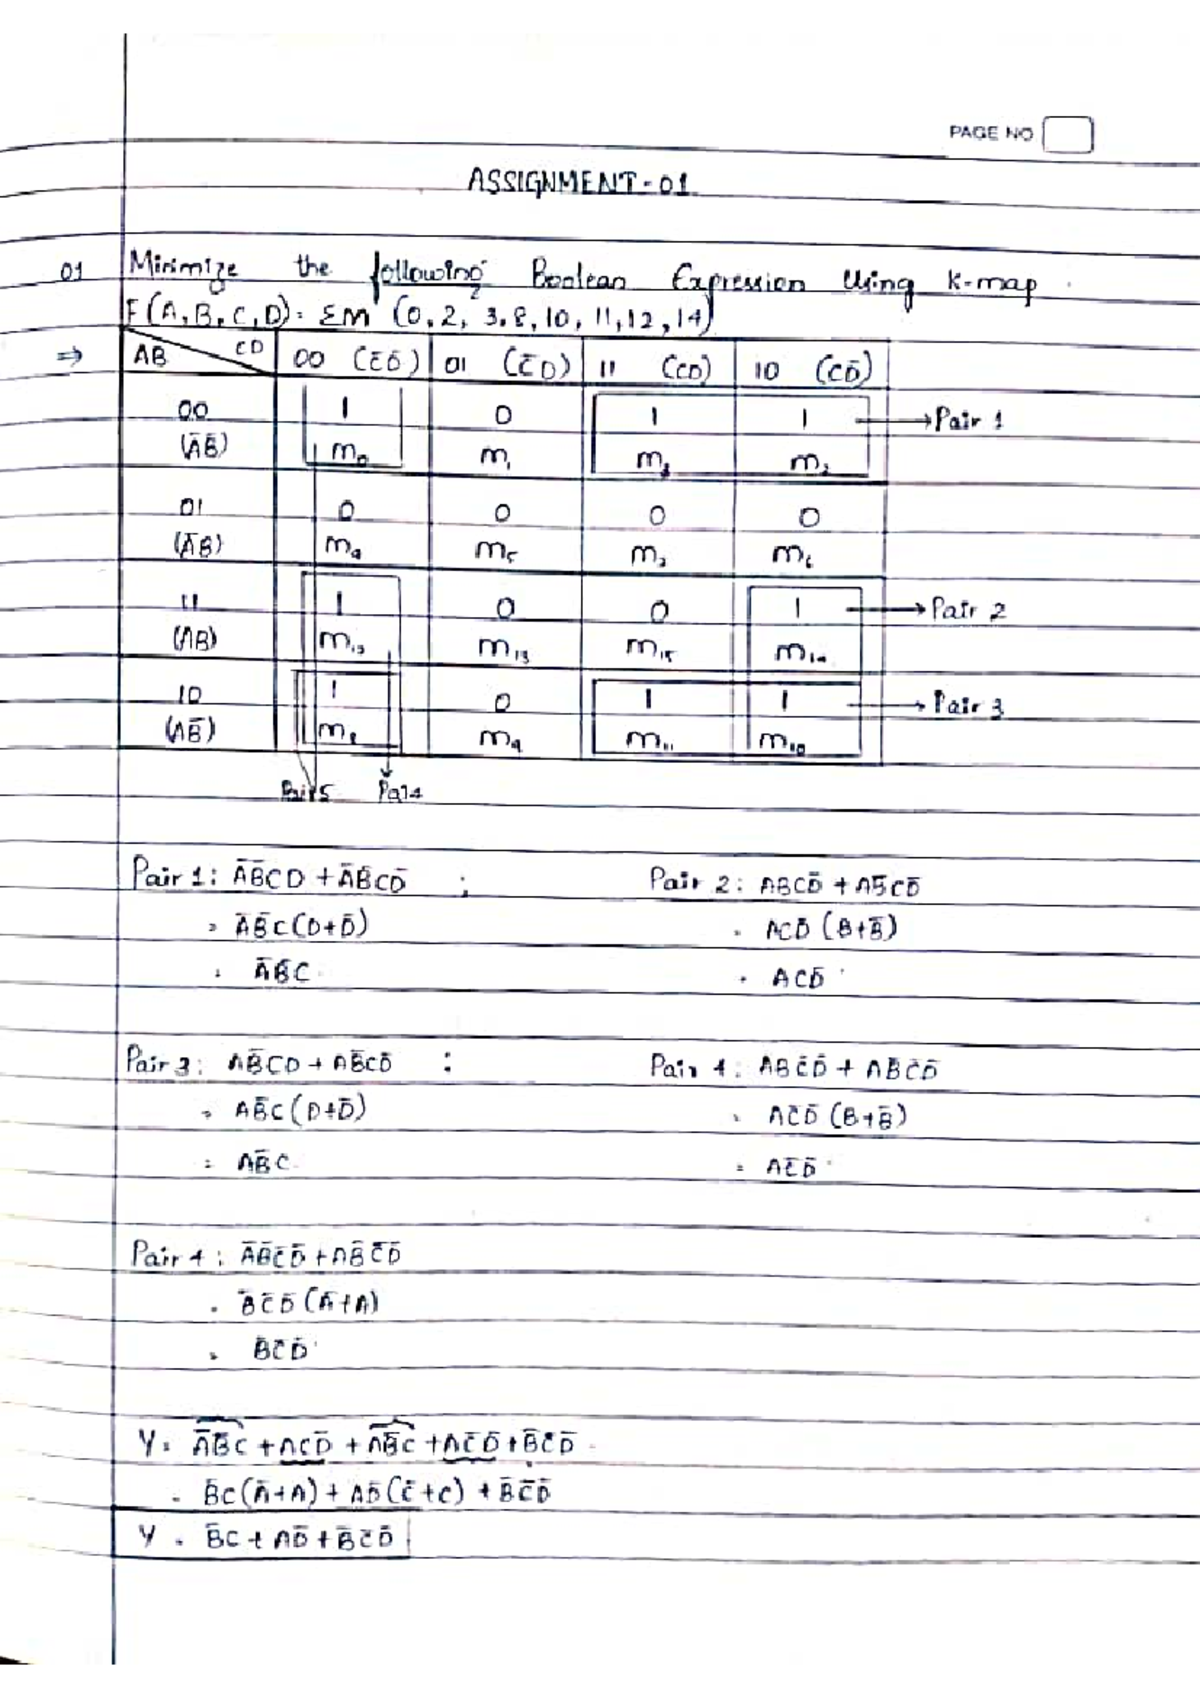 PAGE NO
ASSIGNMENT-01
01 Minimize the following Boolean Expression Using K-map.
F(A,B,C,D) = Σm (0,2, 3,8,10, 11,12,14)
⇒ AB CD 00 (C̅D̅) 01 (C̅D) 11 (CD) 10 (CD̅)
00 1 0 1 1 → Pair 1
(A̅B̅) m₀ m₁ m₃ m₂
01 0 0 0 0
(A̅B) m₄ m₅ m₇ m₆
11 1 0 0 1 → Pair 2
(AB) m₁₂ m₁₃ m₁₅ m₁₄
10 1 0 1 1 → Pair 3
(AB̅) m₈ m₉ m₁₁ m₁₀
Pair5 Pai4
Pair 1: A̅B̅CD + A̅B̅CD̅ ;
= A̅B̅C(D+D̅)
= A̅B̅C
Pair 2: ABCD̅ + AB̅CD̅
= ACD̅ (B+B̅)
= ACD̅
Pair 3: AB̅CD + AB̅CD̅ :
= AB̅C(D+D̅)
= AB̅C
Pair 4: ABC̅D̅ + AB̅C̅D̅
= AC̅D̅ (B+B̅)
= AC̅D̅
Pair 4: A̅B̅C̅D̅ + AB̅C̅D̅
= B̅C̅D̅ (A̅+A)
= B̅C̅D̅
Y = A̅B̅C + ACD̅ + AB̅C + AC̅D̅ + B̅C̅D̅
= B̅C(A̅+A) + AD̅(C̅+C) + B̅C̅D̅
Y = B̅C + AD̅ + B̅C̅D̅